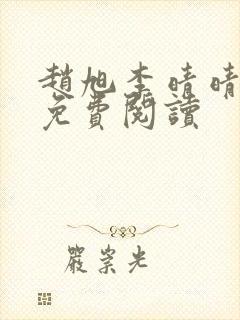 趙旭李晴晴
免費閱讀
嚴崇光